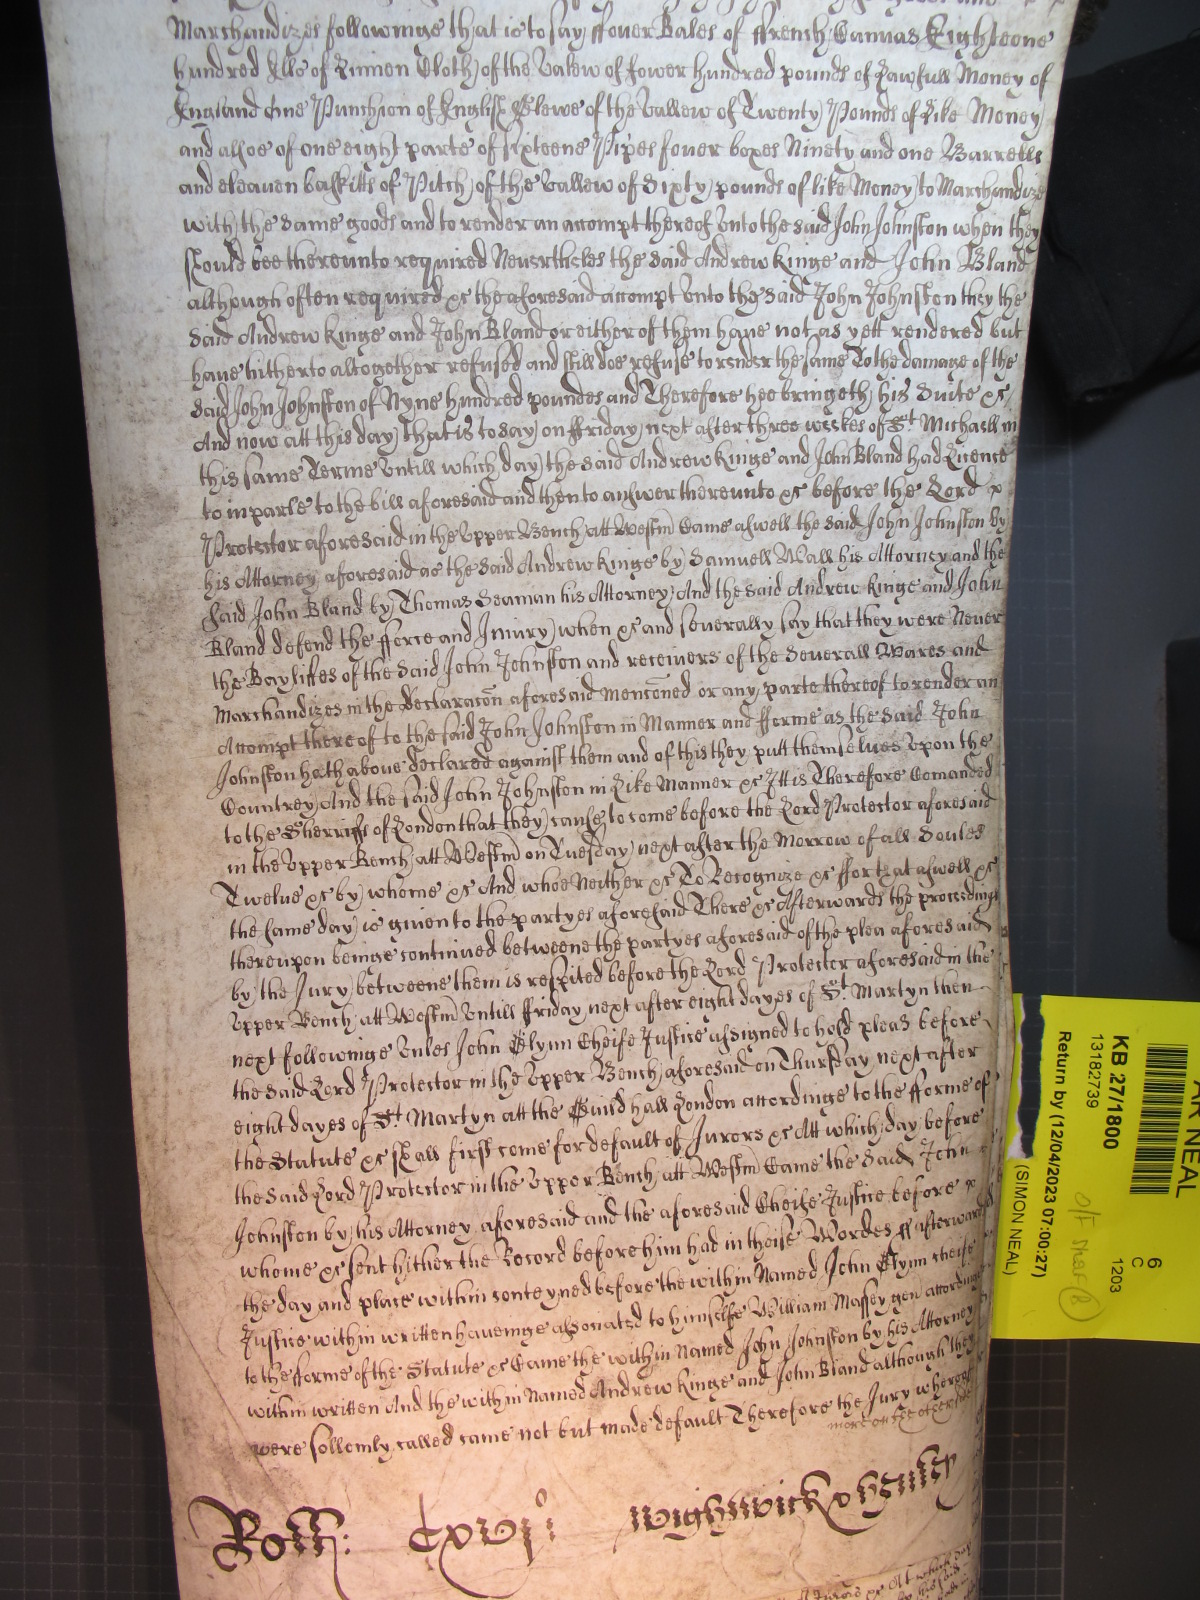 Marchandizes followinge that is to say ffower Bales of ffrench Canvas Eighteene
hundred Ells of Linnen Cloth of the valew of fower hundred pounds of Lawfull Money of
England One Punchion of English Glewe of the vallew of Twenty Pounds of Like Money
and alsoe of one eight parte of sixteene Pipes fower boxes Ninety and one Barrells
and eleaven baskitts of Pitch of the vallew of Sixty pounds of like Money to Marchandize
with the same goods and to render an accompt thereof unto the said John Johnston when they
should bee thereunto required Nevertheles the said Andrew Kinge and John Bland
although often required &c the aforesaid accompt unto the said John Johnston they the
said Andrew Kinge and John Bland or either of them have not as yett rendered but
have hitherto altogether refused and still doe refuse to render the same To the damage of the
said John Johnston of Nyne hundred poundes and Therefore hee bringeth his Suite &c
And now att this day that is to say on ffriday next after three weekes of St Michaell in
this same Terme untill which day the said Andrew Kinge and John Bland had Licence
to inparle to the bill aforesaid and then to answer thereunto &c before the Lord
Protector aforesaid in the Upper Bench att Westm Came aswell the said John Johnston by
his Attorney aforesaid as the said Andrew Kinge by Samuell Wall his Attorney and the
said John Bland by Thomas Seaman his Attorney And the said Andrew Kinge and John
Bland defend the fforce and Iniury when &c and severally say that they were Never
the Bayliffes of the said John Johnston and receivers of the severall Wares and
Marchandizes in the declaracōn aforesaid mencōned or any parte thereof to render an
Accompt thereof to the said John Johnston in Manner and fforme as the said John
Johnston hath above declared against them and of this they putt themselves upon the
Countrey And the said John Johnston in Like Manner &c Itt is Therefore Comanded
to the Sherriffs of London that they cause to come before the Lord Protector aforesaid
in the Upper Bench att Westm on Tuesday next after the Morrow of all Soules
Twelve &c by whome &c And whoe Neither &c To Recognize &c ffor that aswell &c
the same day is given to the partyes aforesaid There &c Afterwards the proceedings
thereupon beinge continued betweene the partyes aforesaid of the plea aforesaid
by the Jury betweene them is respited before the Lord Protector aforesaid in the
Upper Bench att Westm untill ffriday next after eight dayes of St Martyn then
next followinge unles John Glynn Cheife Justice assigned to hold pleas before
the said Lord Protector in the Upper Bench aforesaid on Thursday next after
eight dayes of St Martyn att the Guild hall London accordinge to the fforme of
the Statute &c shall first come for default of Jurors &c Att which day before
the said Lord Protector in the Upper Bench att Westm Came the said John
Johnston by his Attorney aforesaid and the aforesaid Cheife Justice before
whome &c sent hither the Record before him had in theise Wordes ff afterwards
the day and place within conteyned before the within Named John Glynn cheife
Justice within written haveinge assosiated to himselfe William Massey gen accordinge
to the fforme of the Statute &c Came the within Named John Johnston by his Attorney
within written And the within Named Andrew Kinge and John Bland although they
were sollemly called came not but made default Therefore the Jury whereof
more on the other side
Roll: Cxvij Wightwick
KB 27/1800
13182739
Return by (12/04/2023 07:00:27)
(SIMON NEAL)
6
C
1203
NEAL